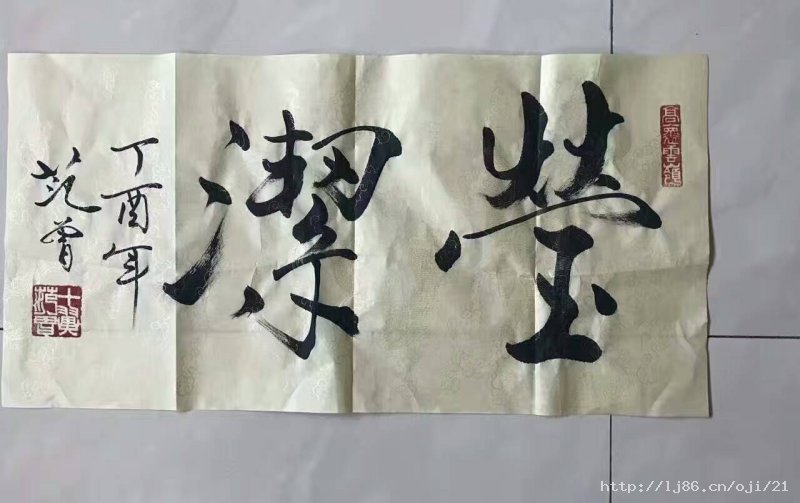 瑩潔
丁酉年
范曾
十翼范曾
http://lj86.cn/oji/21